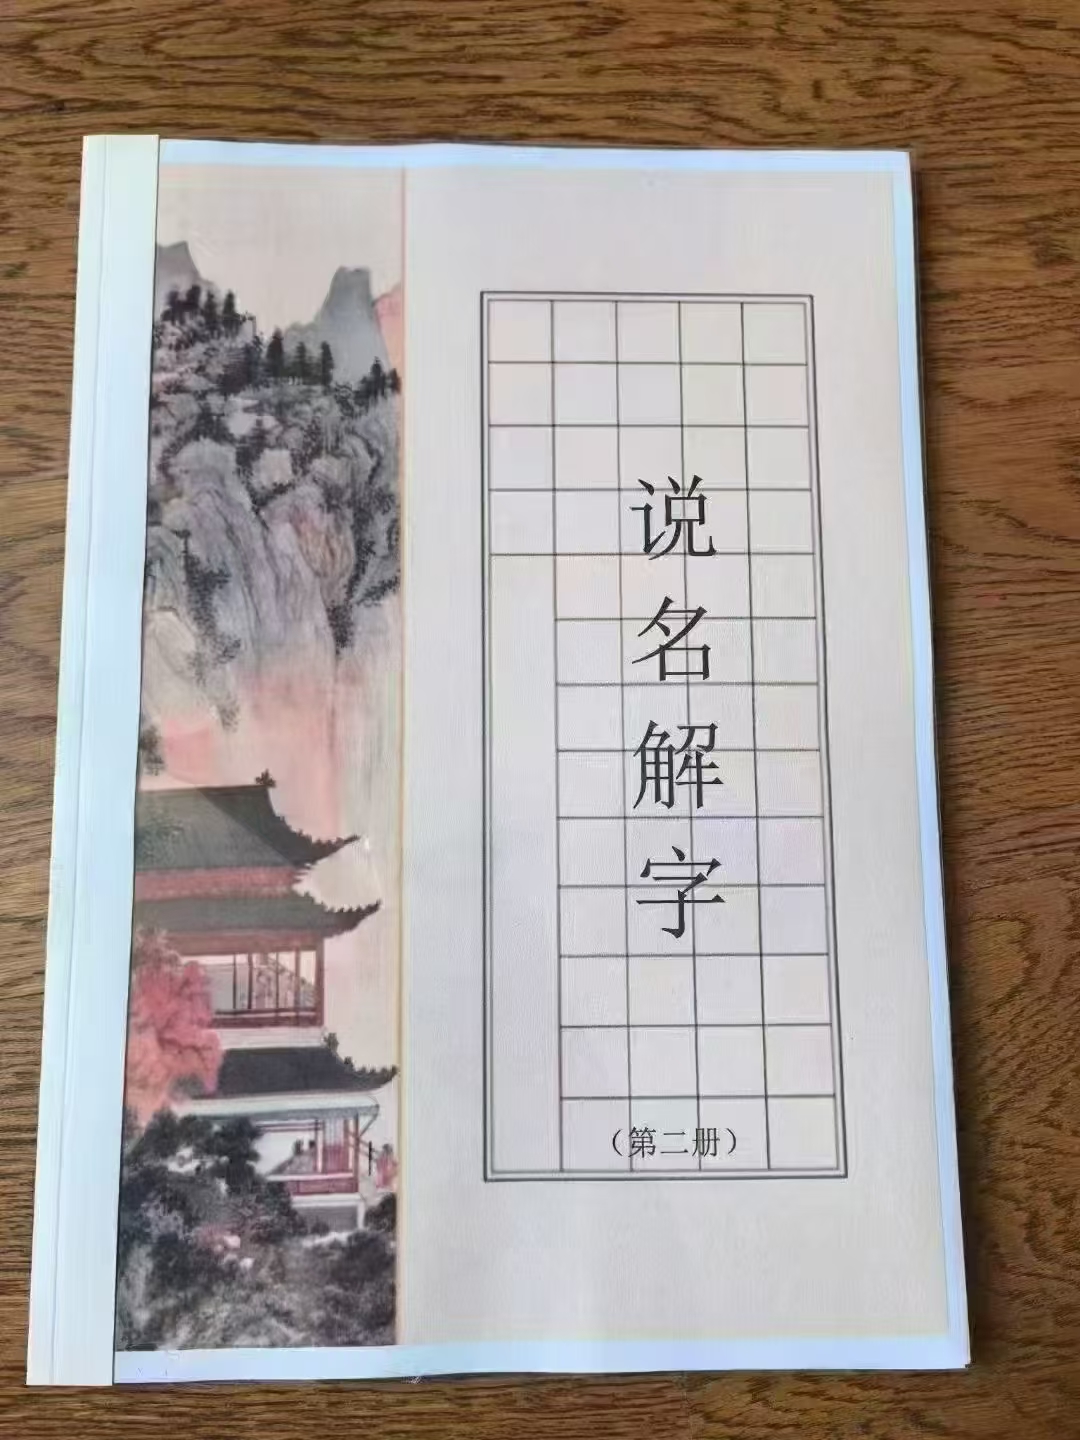 说名解字
（第二册）